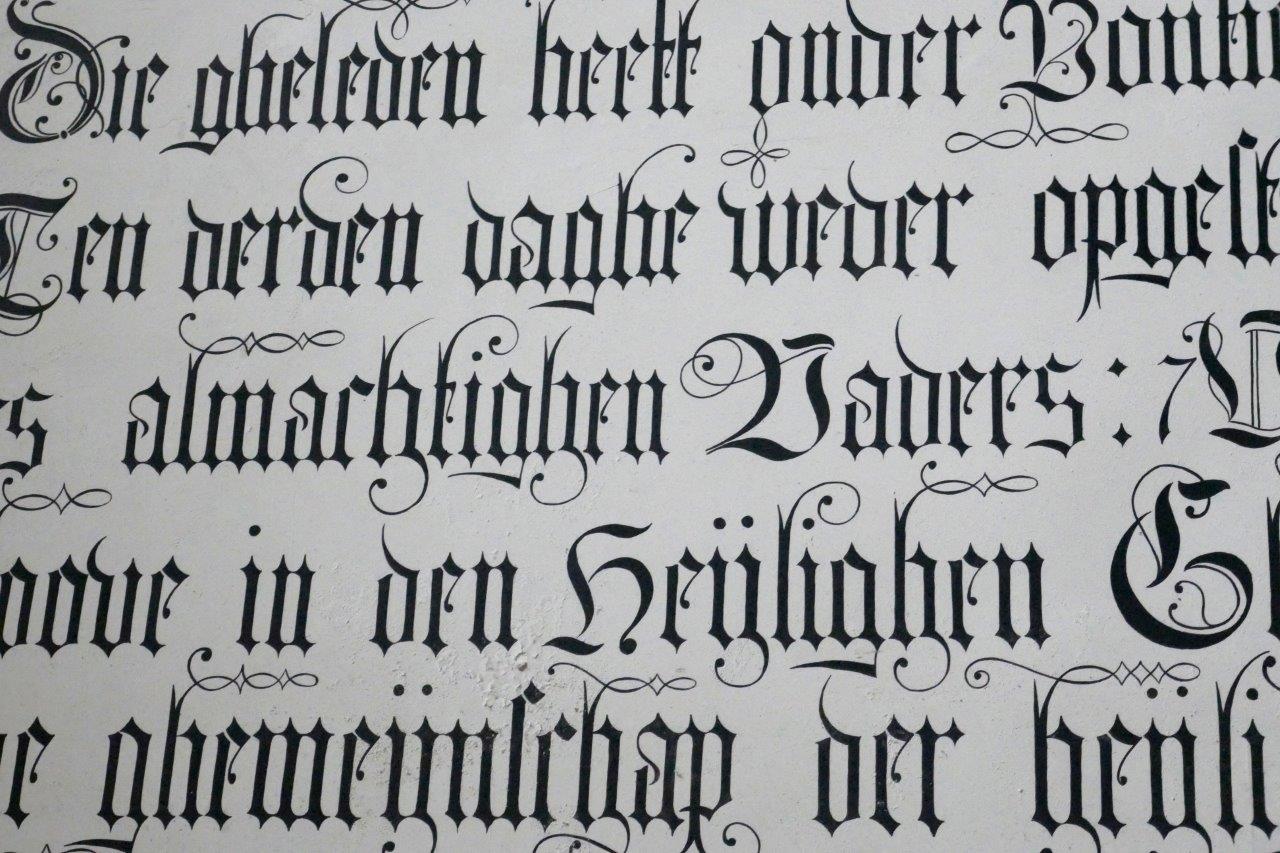 Die gheleden heeft onder Pontiu
Ten derden daghe weder opgest
s almachtighen Vaders :
oove in den Heÿlighen G
e ghemeÿnschap der heÿli